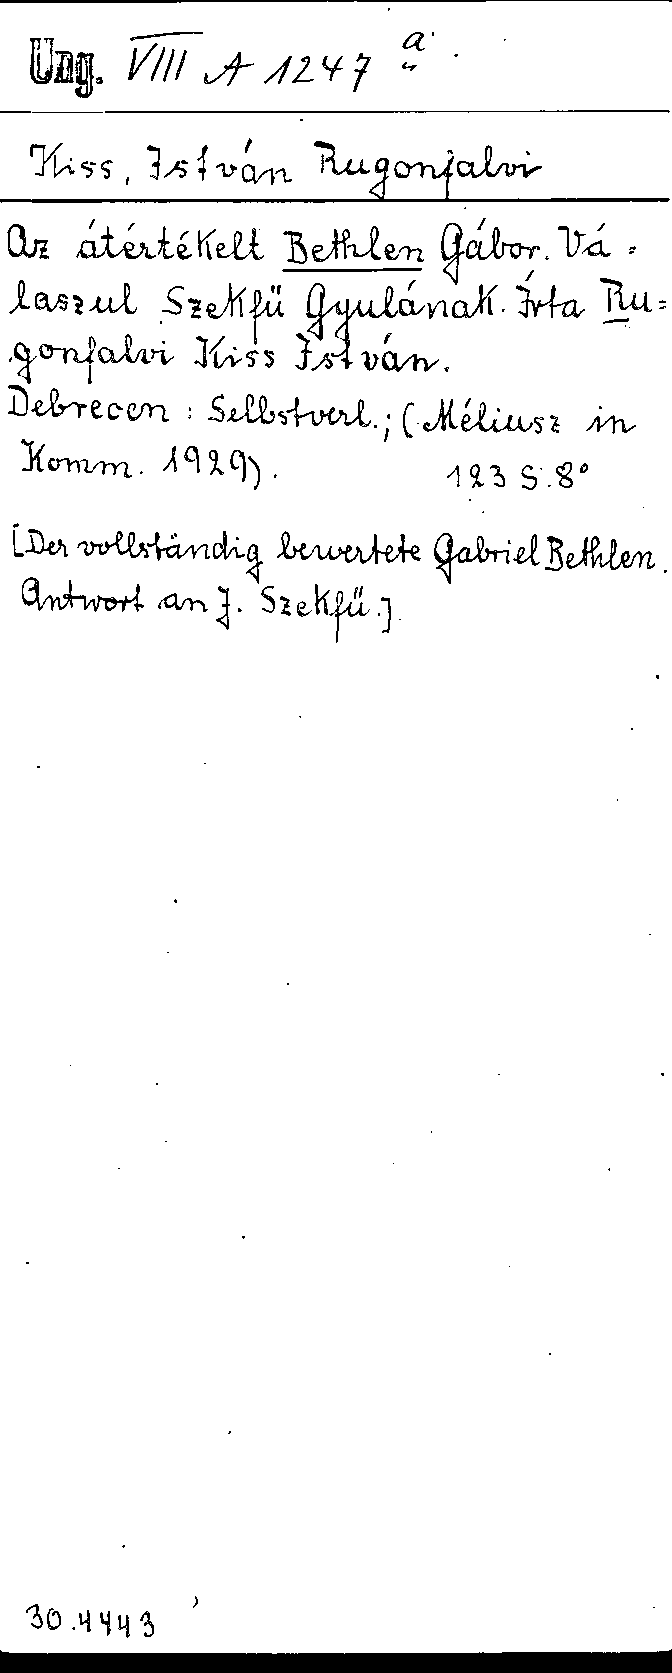 Ung. VIII A 1247 a
Kiss, István Rugonfalvi
Az átértékelt Bethlen Gábor. Vá=
laszul Szekfü Gyulának. Írta Ru=
gonfalvi Kiss István.
Debrecen: Selbstverl.; (Méliusz in
Komm. 1929). 123 S. 8°
[Der vollständig bewertete Gabriel Bethlen.
Antwort an J. Szekfü.]
30.4443